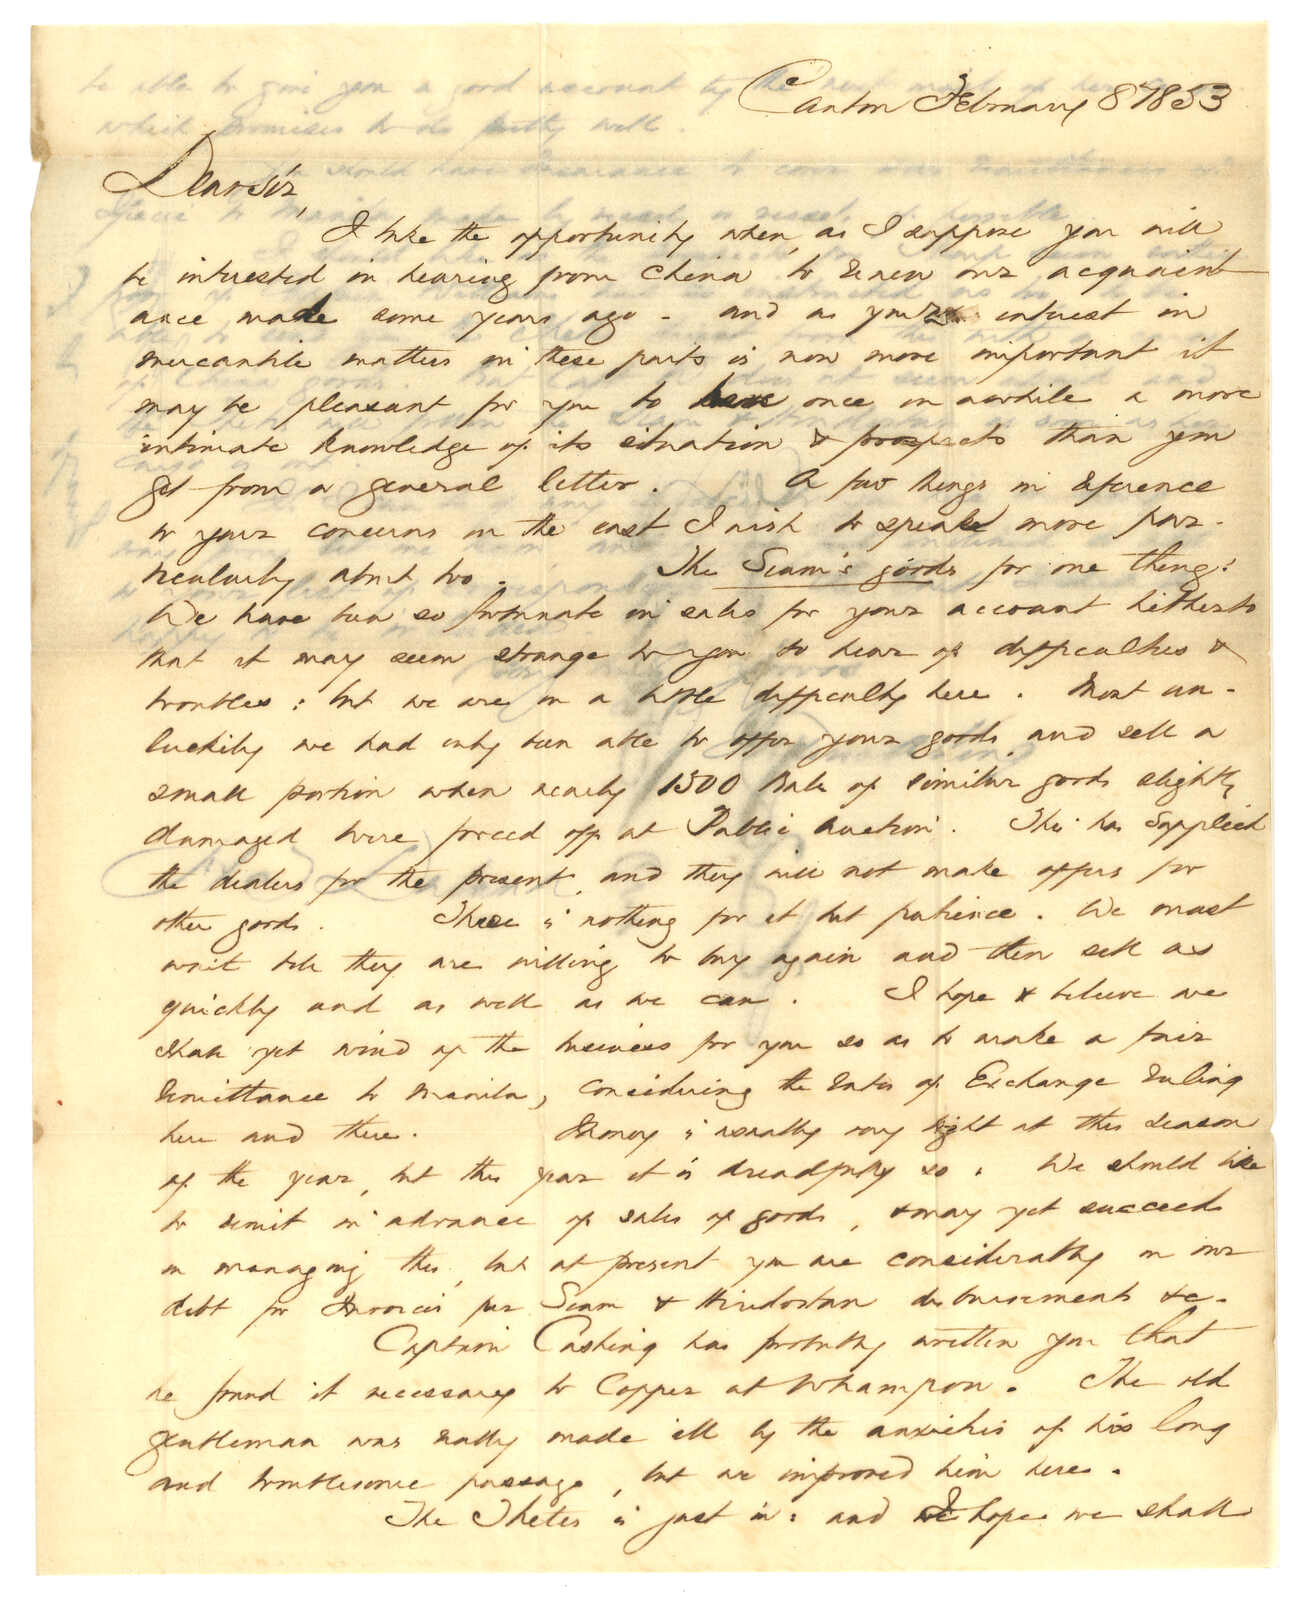 Canton February 8 1853
Dear Sir,
I take the opportunity when, as I suppose you will
be interested in hearing from China to renew our acquaint
ance made some years ago - and as your interest in
mercantile matters in these parts is now more important it
may be pleasant for you to have once in awhile a more
intimate knowledge of its situation & prospects than you
get from a general letter. A few things in reference
to your concerns in the east I wish to speak more par-
ticularly about too. The Siam's goods for one thing:
We have been so fortunate in sales for your account hitherto
that it may seem strange to you to hear of difficulties &
troubles: but we are in a little difficulty here. Most un-
luckily we had only been able to offer your goods and sell a
small portion when nearly 1500 Bale of similar goods slightly
damaged were forced off at Public Auction. This has supplied
the dealers for the present, and they will not make offers for
other goods. There is nothing for it but patience. We must
wait till they are willing to buy again and then sell as
quickly and as well as we can. I hope & believe we
shall yet wind up the business for you so as to make a fair
remittance to Manila, considering the rates of Exchange ruling
here and there. Money is usually very tight at this season
of the year, but this year it is dreadfully so. We should like
to remit in advance of sales of goods, & may yet succeed
in managing this, but at present you are considerably in our
debt for Invoices per Siam & Hindostan disbursements &c -
Captain Cushing has probably written you that
he found it necessary to Copper at Whampoa. The old
gentleman was really made ill by the anxieties of his long
and troublesome passage, but we improved him here.
The Thetis is just in: and I hope we shall